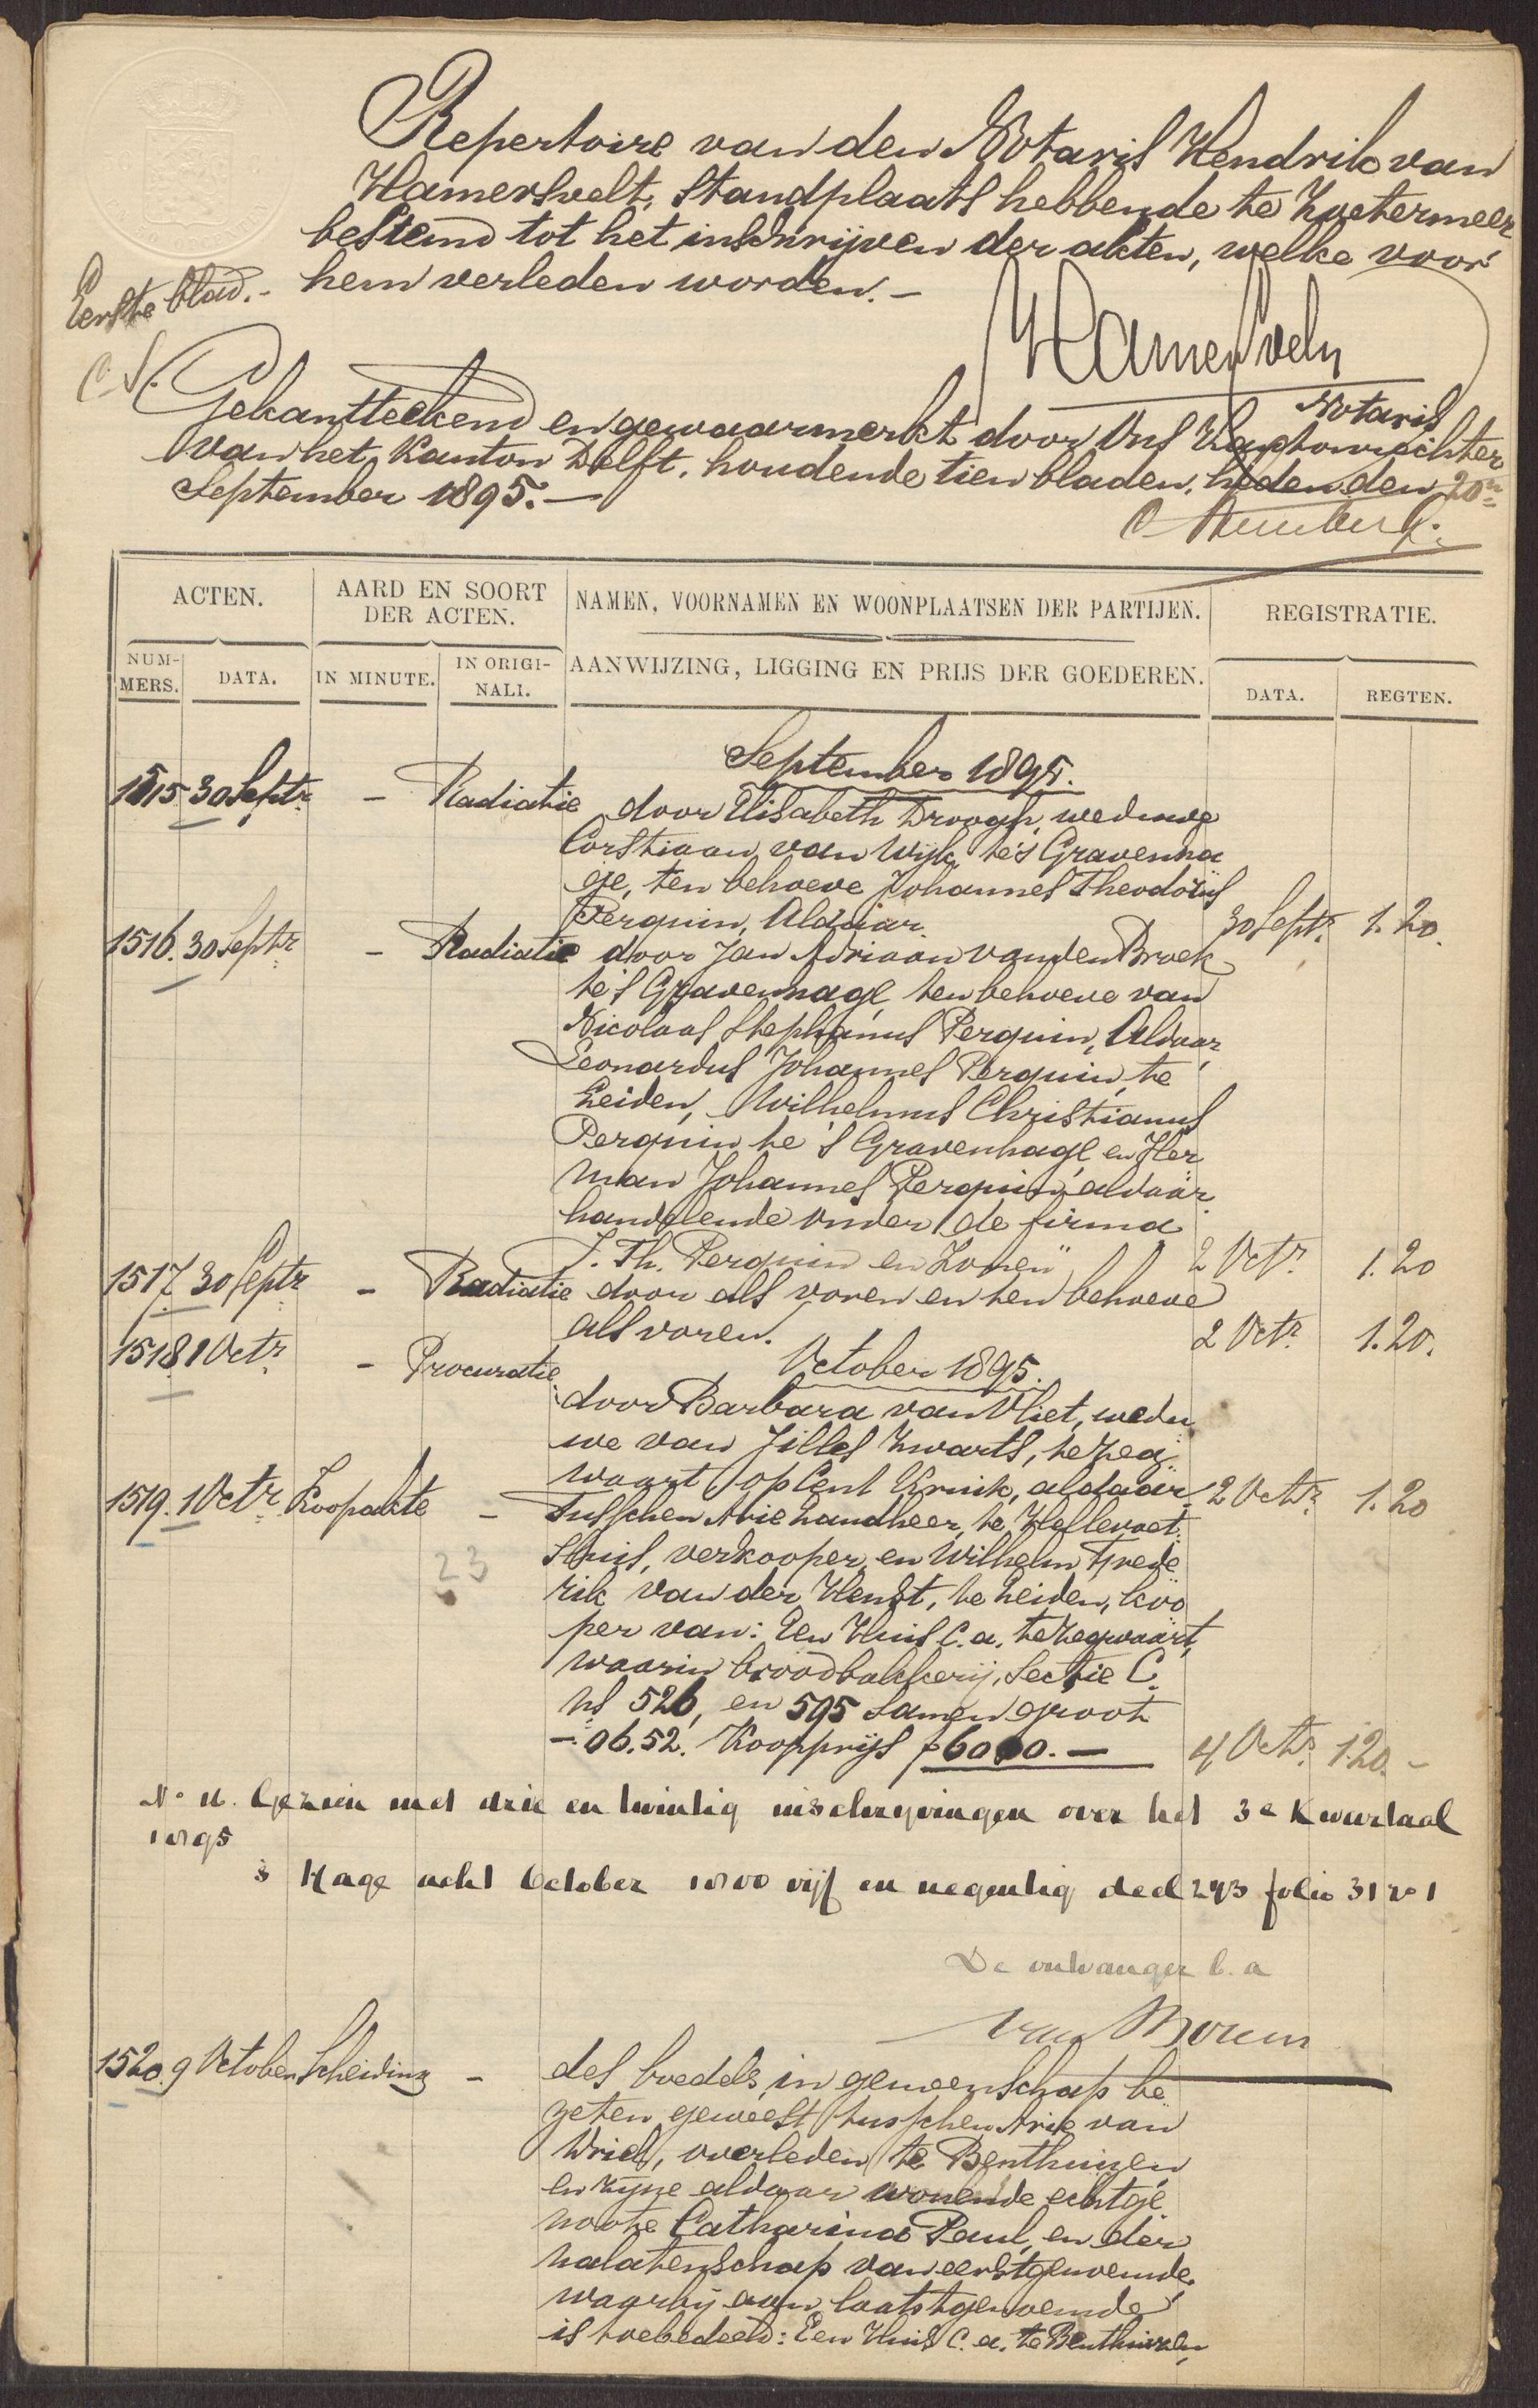 Repertoire van den Notaris Hendrik van
Hamersvelt, Standplaats hebbende te Zoetermeer
bestemd tot het inschrijven der akten, welke voor
hem verleden worden. -
Eerste blad. -
HamersVelt
Notaris
C S.
Gekantteekend en gewaarmerkt door Ons Kantonrechter
van het Kanton Delft, houdende tien bladen, heden den 20n
September 1895. -
ACTEN.
AARD EN SOORT
DER ACTEN.
NAMEN, VOORNAMEN EN WOONPLAATSEN DER PARTIJEN.
REGISTRATIE.
NUM-
MERS.
DATA.
IN MINUTE.
IN ORIGI-
NALI.
AANWIJZING, LIGGING EN PRIJS DER GOEDEREN.
DATA.
REGTEN.
September 1895.
1515 30 Septr - Radiatie door Elisabeth Droogh, weduwe
Corstiaan van Wijk, te 's Gravenha
ge, ten behoeve Johannes Theodorus
Perquin, Aldaar. 30 Septr 1.20.
1516. 30 Septr - Radiatie door Jan Adriaan van den Broek
te 's Gravenhage, ten behoeve van
Nicolaas Stephanus Perquin, Aldaar,
Leonardus Johannes Perquin, te
Leiden, Wilhelmus Christianus
Perquin te 's Gravenhage, en Her
man Johannes Perquin, aldaar,
handelende onder de firma
J. Th. Perquin en Zonen" 2 Octr 1.20
1517. 30 Septr - Radiatie door als voren en ten behoeve
als voren. 2 Octr 1.20.
October 1895.
1518. 1 Octr - Procuratie
door Barbara van Vliet, wedu
we van Jilles Zwarts, te Zeg
waart op Cent Kruik, aldaar. 2 Octr 1.20
1519. 1 Octr Koopakte - Tusschen Arie Landheer, te Hellevoet
sluis, verkooper, en Wilhelm Frede
23
rik van der Henst, te Leiden, koo
per van: Een Huis c.a. te Zegwaart,
waarin broodbakkerij, Sectie C.
Ns 526, en 595 samen groot
-.06.52. Koopprijs f 6000. - 4 Octr 1.20. -
No 11. Gezien met drie en twintig inschrijvingen over het 3e Kwartaal
1895
's Hage acht October 1800 vijf en negentig deel 293 folio 31 vo 1
De ontvanger b. a
1520. 9 October Scheiding - des boedels, in gemeenschap be
zeten geweest tusschen Arie van
Driel, overleden te Benthuizen,
en zijne aldaar wonende echtge
noote Catharina Paul, en der
nalatenschap van eerstgenoemde,
waarbij aan laatstgenoemde
is toebedeeld: Een Huis c. a. te Benthuizen,